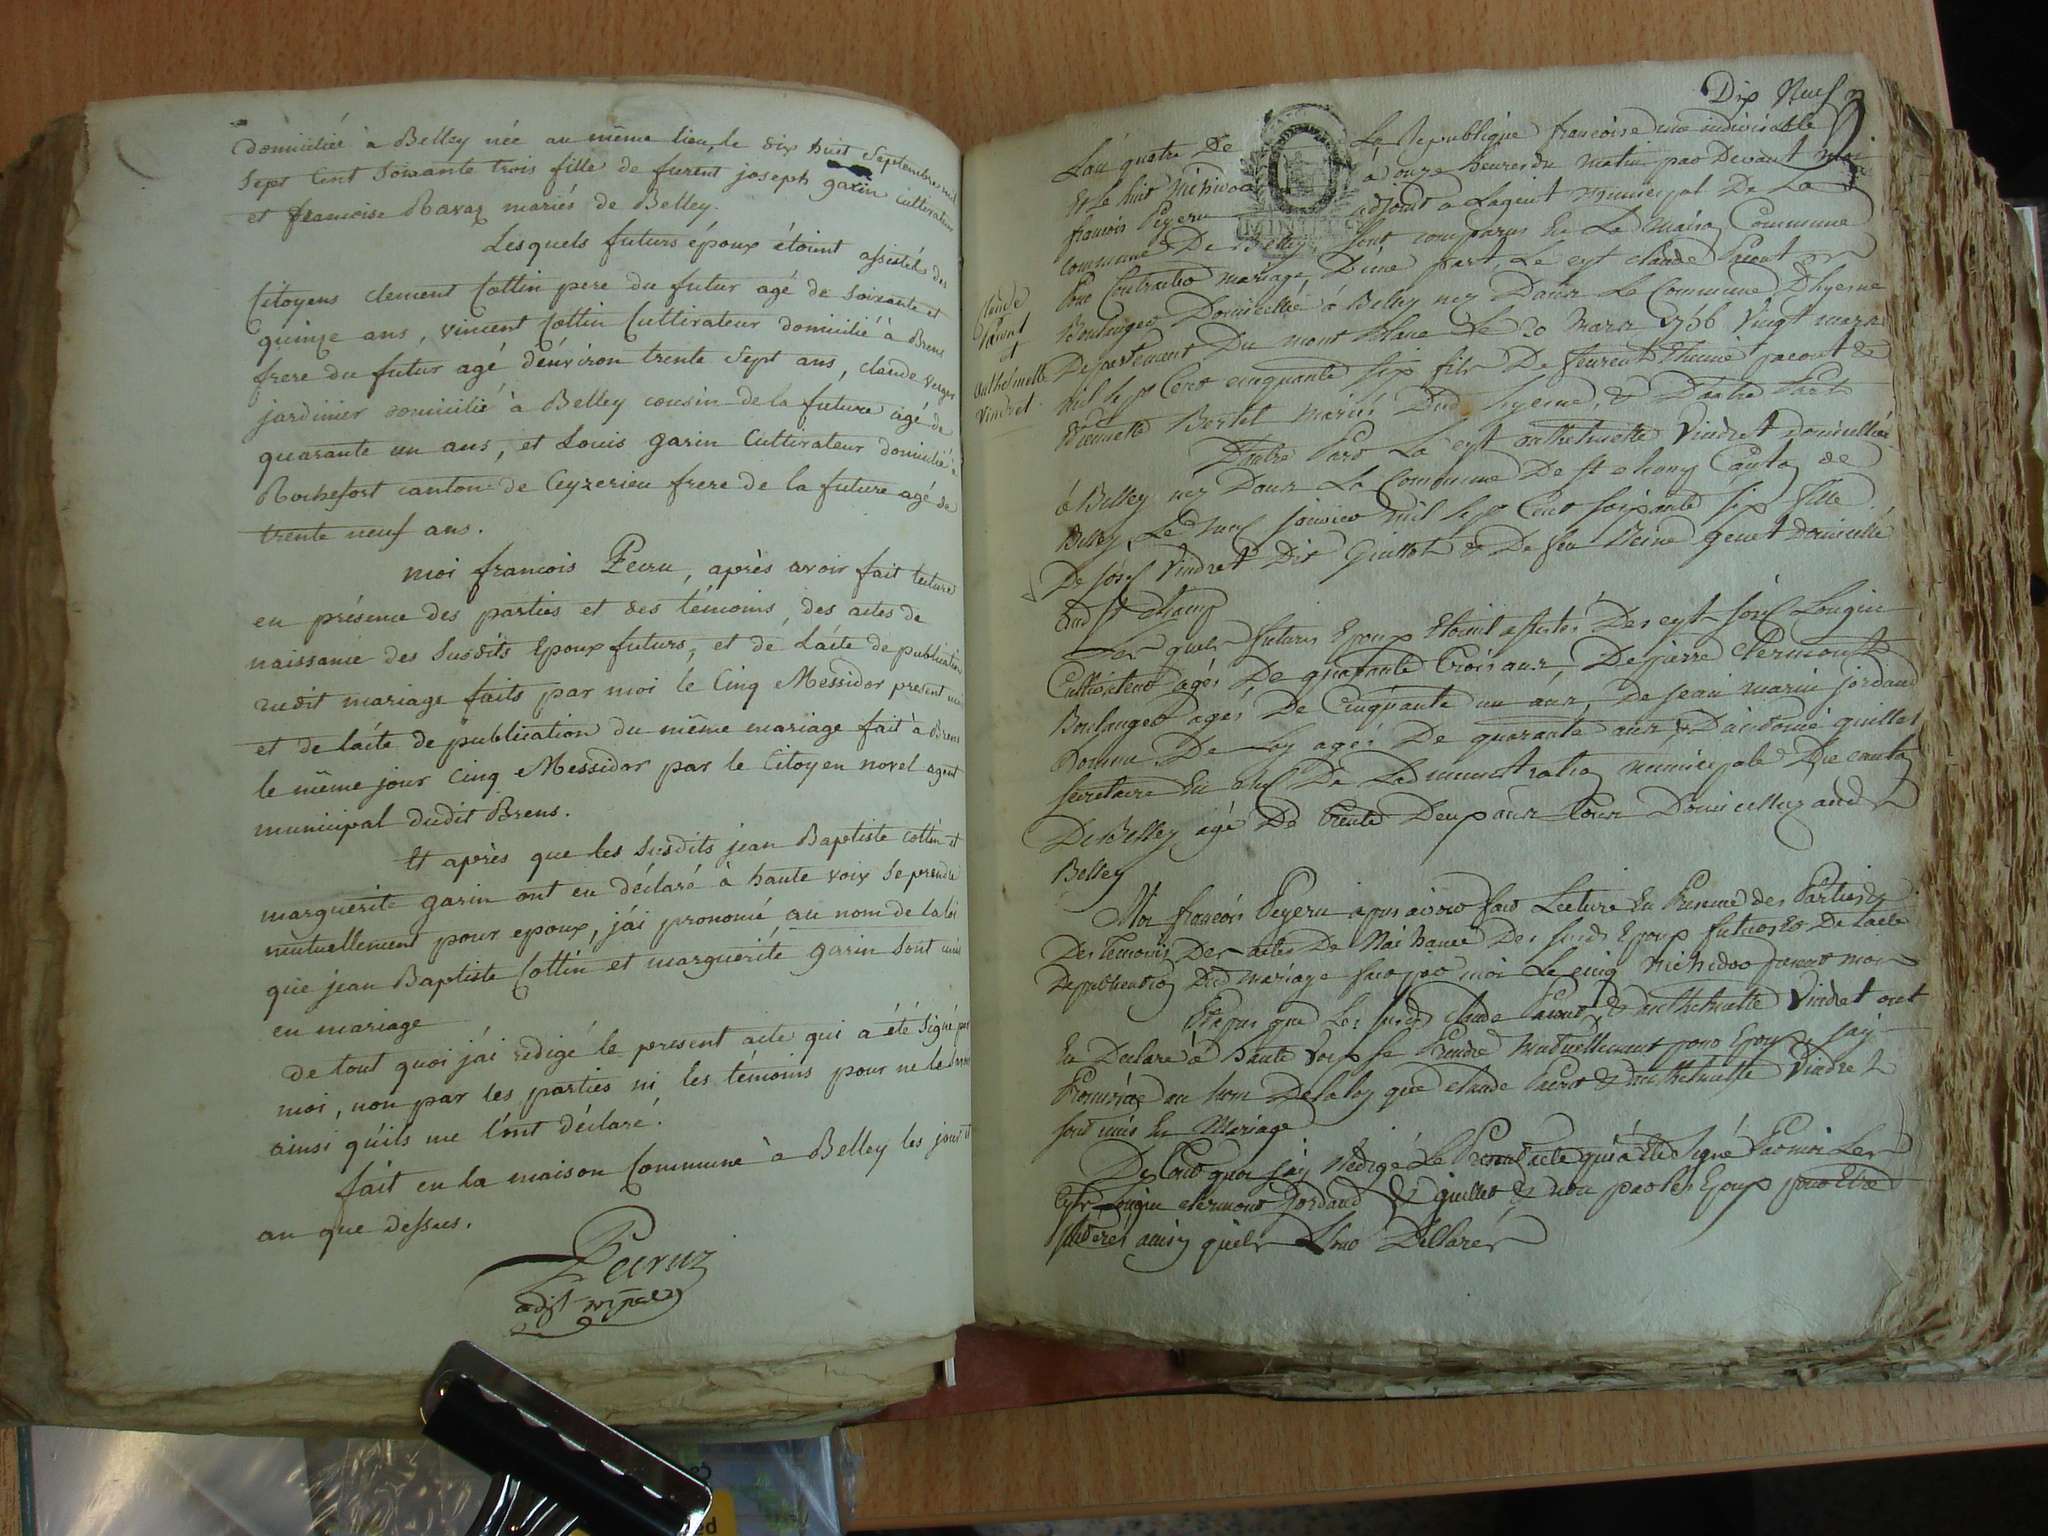 domiciliée à Belley née au même lieu, le dix huit Septembre mil
Sept Cent Soixante trois fille de furent joseph garin cultivateur
et francoise Ravaz mariés de Belley.
Lesquels futurs époux étoint assistés des
Citoyens clement Cottin pere du futur agé de Soixante et
quinze ans, vincent Cottin Cultivateur domicilié à Brens
frere du futur agé d'énviron trente Sept ans, claude verger
jardinier domicilié à Belley cousin de la future agé de
quarante un ans, et Louis garin Cultivateur domicilié à
Rochefort canton de Ceyzerieu frere de la future agé de
trente neuf ans.
moi francois Peiru, après avoir fait lecture
en présence des parties et des témoins, des actes de
naissance des Susdits Epoux futurs, et de L'acte de publication
dudit mariage faits par moi le Cinq Messidor present mois
et de l'acte de publication du même mariage fait à Brens
le même jour Cinq Messidor par le Citoyen novel agent
municipal dudit Brens.
Et après que les Susdits jean Baptiste Cottin et
marguerite garin ont eu déclaré à haute voix Se prendre
mutuellement pour epoux, j'ai prononcé au nom de la loi
que jean Baptiste Cottin et marguerite garin Sont unis
en mariage
de tout quoi j'ai redigé le present acte qui a été Signé par
moi, non par les parties ni les témoins pour ne le Savoir
ainsi qu'ils me l'ont déclaré.
fait en la maison Commune à Belley les jour et
an que dessus.
adjt mpal
Dix Neuf
L'an quatre De La Republique francoise une indivisible
Et le huit Messidor à onze heures du matin par Devant moi
francois Peyeru adjoint a Lagent municipal De La
commune De Belley, Sont comparus En La Maison Commune
Pour Contracter mariage, D'une part, Le cyt claude
Boulanger Domicellié à Belley nez Dans La Commune D'hyenne
Departement Du mont blanc Le 20 Mars 1756 Vingt mars
mil sept Cent cinquante six fils De feurent
Bertet Mariés Dud hyenne, & D'autre Part
D'autre Part La cyt anthelmette Vindret domicelliée
à Belley nez Dans La Commune De st champ Canton de
Belley, Le neuf janvier mil sept Cent soixante six fille
De josef Vindret Dit Guillot & De feu genet domicellié
Aud st champ
Les quels futurs Epoux Etoint assistés Des cyts josef Longin
Cultivateur agés De quarante trois ans, De pierre Clermont
Boulanger agés De Cinquante un ans, De jean marin jordand
homme De Loy agés De quarante ans & D'antoine guillet
secretaire En chef De Ladministration municipale Du canton
De Belley agé De trente Deux ans Tous Domicelliez aud
Belley
Moi francois Peyeru apres avoir fait Lecture En Presence des Parties &
Des temoins Des actes De Naissance Des susds Epoux futurs & De Lacte
De publication Dud mariage fait par moi Le cinq Messidor present mois
Et apres que Les susds claude & anthelmette Vindret ont
Eu Declaré à haute voix se Prendre mutuellement pour Epoux, j'ay
Prononcé au nom De la loy que claude & anthelmette Vindret
sont unis En Mariage
De Tout quoi j'ay Redigé Le Present acte qui a été Signé Par moi Les
Cyts Longin clermont jordand & guillet & non par les Epoux pour Etre
ainsy quils L'ont Déllarés
claude
et
anthelmette
Vindret